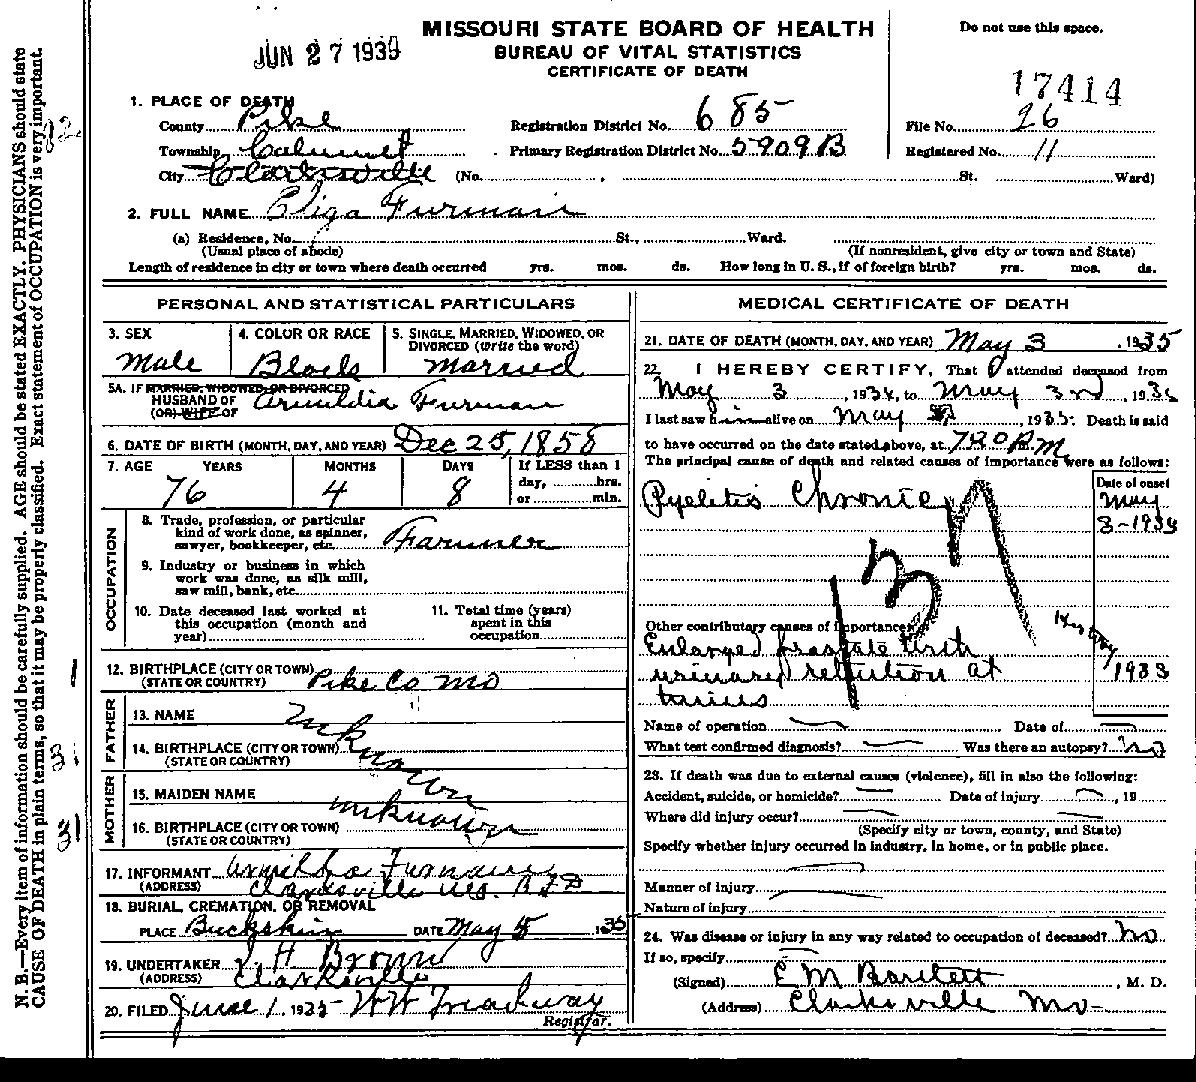 JUN 27 1935
MISSOURI STATE BOARD OF HEALTH
BUREAU OF VITAL STATISTICS
CERTIFICATE OF DEATH
Do not use this space.
17414
1. PLACE OF DEATH
County Pike Registration District No. 685 File No. 26
Township Calumet Primary Registration District No. 5909B Registered No. 11
City Clarksville (No. , St. Ward)
2. FULL NAME Eliga Furman
(a) Residence, No. St., Ward.
(Usual place of abode) (If nonresident, give city or town and State)
Length of residence in city or town where death occurred yrs. mos. ds. How long in U. S., if of foreign birth? yrs. mos. ds.
PERSONAL AND STATISTICAL PARTICULARS
3. SEX
Male
4. COLOR OR RACE
Black
5. SINGLE, MARRIED, WIDOWED, OR
DIVORCED (write the word)
Married
5A. IF MARRIED, WIDOWED, OR DIVORCED
HUSBAND OF
(OR) WIFE OF
Furman
6. DATE OF BIRTH (MONTH, DAY, AND YEAR) Dec 25, 1858
7. AGE YEARS MONTHS DAYS If LESS than 1
day, hrs.
or min.
76 4 8
OCCUPATION
8. Trade, profession, or particular
kind of work done, as spinner,
sawyer, bookkeeper, etc. Farmer
9. Industry or business in which
work was done, as silk mill,
saw mill, bank, etc.
10. Date deceased last worked at
this occupation (month and
year)
11. Total time (years)
spent in this
occupation
12. BIRTHPLACE (CITY OR TOWN)
(STATE OR COUNTRY) Pike Co Mo
FATHER
13. NAME
14. BIRTHPLACE (CITY OR TOWN)
(STATE OR COUNTRY)
Unknown
MOTHER
15. MAIDEN NAME
16. BIRTHPLACE (CITY OR TOWN)
(STATE OR COUNTRY)
unknown
17. INFORMANT
(ADDRESS) Clarksville Mo. R F D
18. BURIAL, CREMATION, OR REMOVAL
PLACE Buckskin DATE May 5 1935
19. UNDERTAKER J. H Brown
(ADDRESS) Clarksville
20. FILED June 1, 1935 W W Treadway
Registrar.
MEDICAL CERTIFICATE OF DEATH
21. DATE OF DEATH (MONTH, DAY, AND YEAR) May 3, 1935
22. I HEREBY CERTIFY, That I attended deceased from
May 3, 1934, to May 3rd, 1935
I last saw him alive on May , 1935. Death is said
to have occurred on the date stated above, at 7:30 P.M.
The principal cause of death and related causes of importance were as follows:
Date of onset
Pyelitis Chronic May
3-1934
137
Other contributary causes of importance:
Enlarged prostate with
urinary retention at 1933
times
Name of operation Date of
What test confirmed diagnosis? Was there an autopsy? no
23. If death was due to external causes (violence), fill in also the following:
Accident, suicide, or homicide? Date of injury , 19
Where did injury occur?
(Specify city or town, county, and State)
Specify whether injury occurred in industry, in home, or in public place.
Manner of injury
Nature of injury
24. Was disease or injury in any way related to occupation of deceased? no
If so, specify
(Signed) E M Bartlett, M. D.
(Address) Clarksville Mo-
N. B.—Every item of information should be carefully supplied. AGE should be stated EXACTLY. PHYSICIANS should state
CAUSE OF DEATH in plain terms, so that it may be properly classified. Exact statement of OCCUPATION is very important.
1
31
31